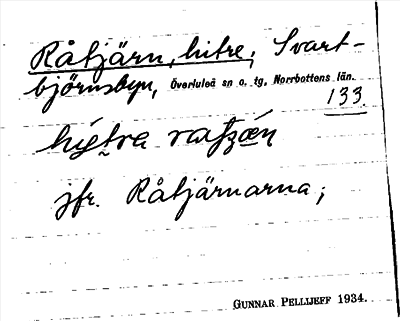 Råtjärn, hitre; Svart-
björnsbyn, Överluleå sn o. tg. Norrbottens län.
133.
jfr. Råtjärnarna;
GUNNAR PELLIJEFF 1934.